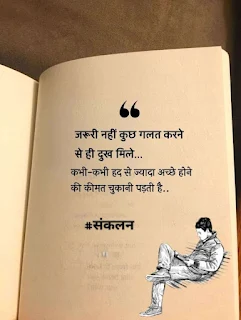 ❝
जरूरी नहीं कुछ गलत करने
से ही दुख मिले...
कभी-कभी हद से ज्यादा अच्छे होने
की कीमत चुकानी पड़ती है..
#संकलन